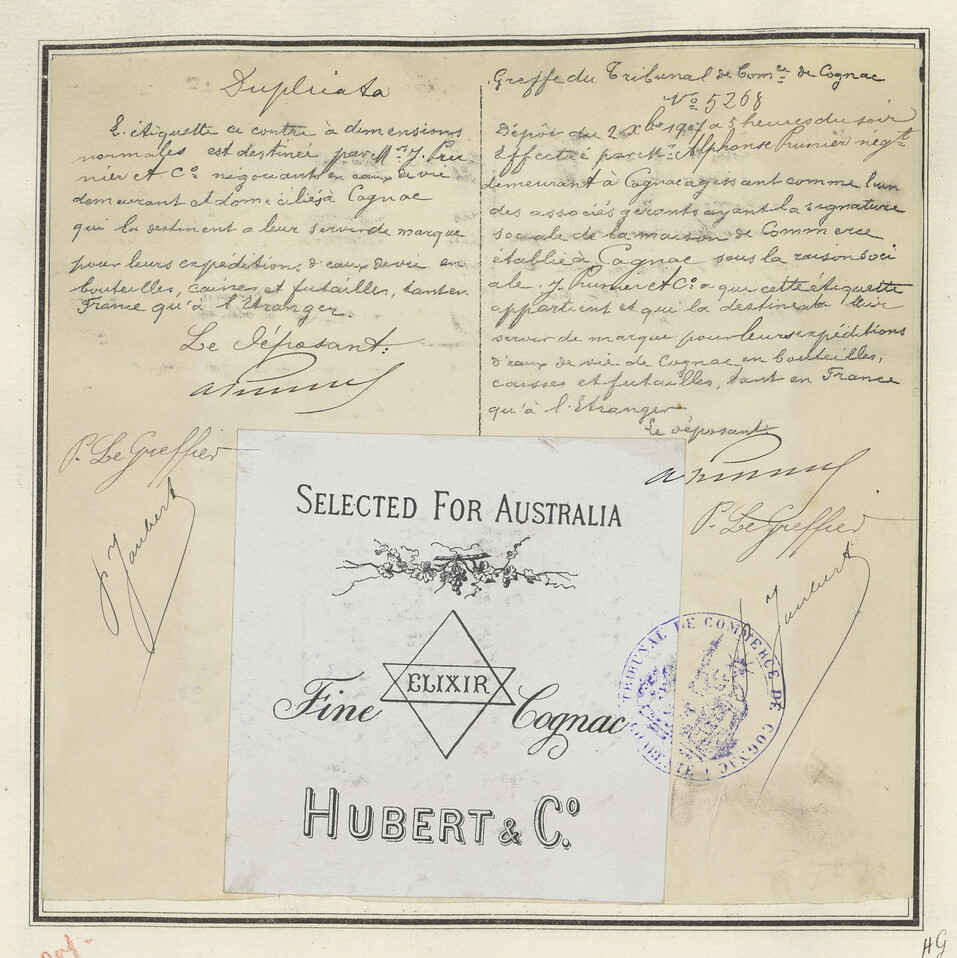 Duplicata
L'étiquette ci contre à dimensions
normales est destinée par Mrs J. Pru-
nier et Co négociants en eaux de vie
demeurant et domiciliés à Cognac
qui la destinent a leur servir de marque
pour leurs expéditions d'eaux de vie en
bouteilles, caisses et futailles, tant en
France qu'à l'Etranger.
Le Déposant:
P. Le Greffier
Greffe du Tribunal de Comce de Cognac
No 5268
Dépôt du 2 Xbre 1907 a 5 heures du soir
Effectué par Mr Alphonse Prunier négt
demeurant à Cognac agissant comme l'un
des associés gérants ayant la signature
sociale de la maison de Commerce
établie à Cognac sous la raison soci
ale J. Prunier et Co a que cette étiquette
appartient et qui la destine à leur
servir de marque pour leurs expéditions
d'eaux de vie de Cognac en bouteilles,
caisses et futailles, tant en France
qu'à l'Etranger
Le déposant
P. Le Greffier
SELECTED FOR AUSTRALIA
ELIXIR
Fine Cognac
HUBERT & Co.
TRIBUNAL DE COMMERCE DE COGNAC
CHARENTE
HG